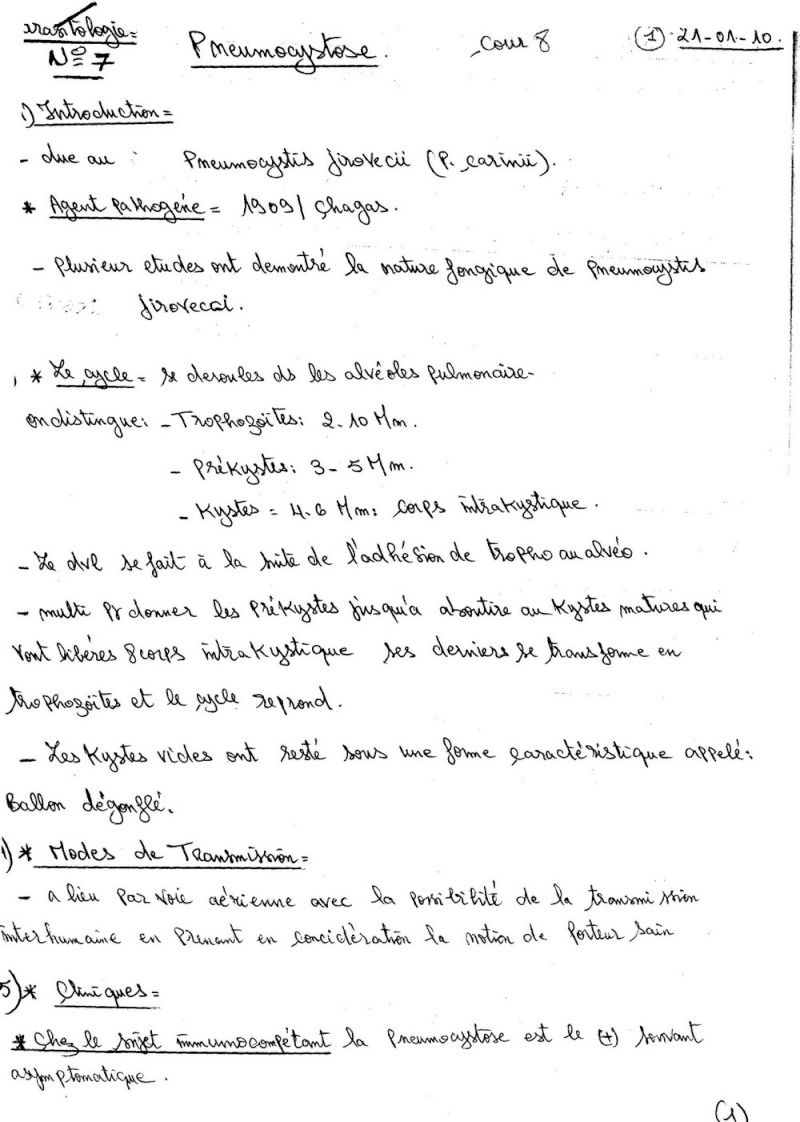 Parasitologie= Pneumocystose. Cour 8 (1) 21-01-10.
N° 7
1) Introduction=
- due au : Pneumocystis jirovecii (P. carinii).
* Agent pathogéne = 1909/ Chagas.
- plusieur etudes ont demontré la nature fongique de pneumocystis
jirovecci.
* Le cycle = se deroules ds les alvéoles pulmonaire-
on distingue: - Trophozoïtes: 2-10 Mm.
- Prékystes: 3-5 Mm.
- Kystes = 4-6 Mm: corps intrakystique.
- Le dvl se fait à la suite de l'adhésion de tropho au alvéo.
- multi pr donner les prékystes jusqu'a aboutire au Kystes matures qui
vont libéres 8 corps intrakystique ses derniers se transforme en
trophozoïtes et le cycle reprend.
- Les Kystes vides ont resté sous une forme caractéristique appelé:
Ballon dégonflé.
1) * Modes de Transmission=
- a lieu par voie aérienne avec la possibilité de la transmission
interhumaine en prenant en concidération la notion de porteur sain
5) * Cliniques=
* chez le sujet immunocompétant la pneumocystose est le (+) souvant
asymptomatique.
(1)